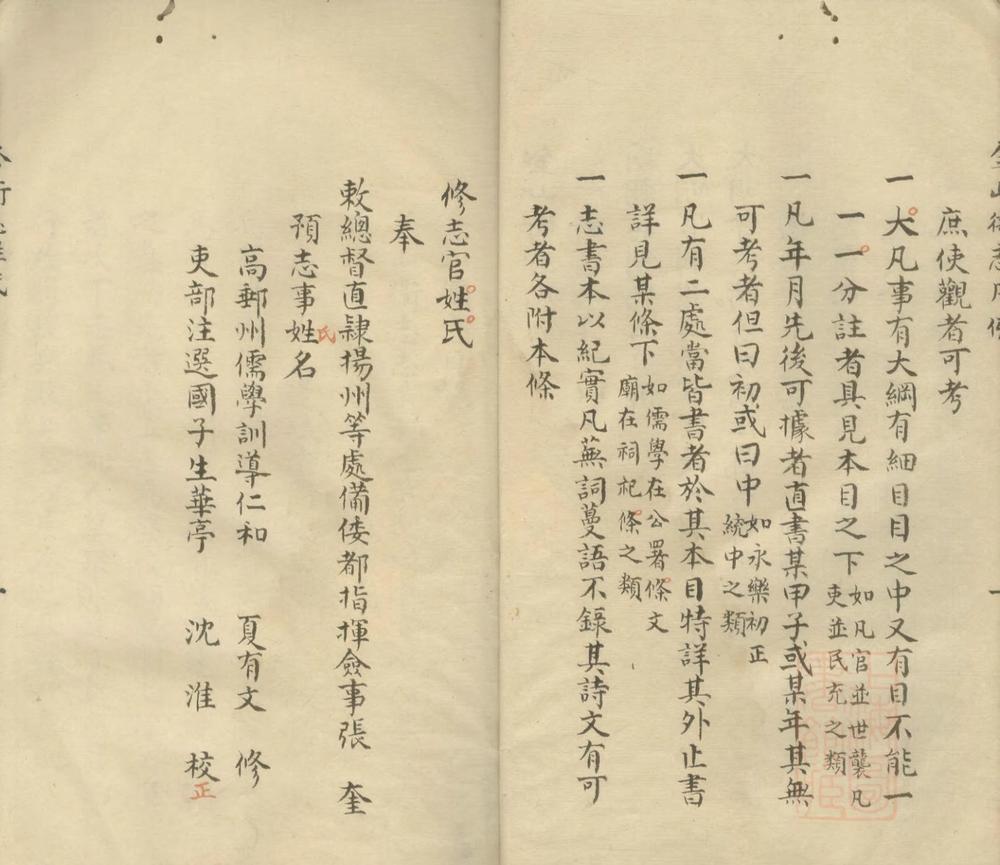 庶使觀者可考
一大凡事有大綱有細目目之中又有目不能一
一一分註者具見本目之下如凡官並世襲凡吏並民充之類
一凡年月先後可據者直書某甲子或某年其無
可考者但曰初或曰中如永樂初正統中之類
一凡有二處當皆書者於其本目特詳其外止書
詳見某條下如儒學在公署條文廟在祠祀條之類
一志書本以紀實凡蕪詞蔓語不錄其詩文有可
考者各附本條
修志官姓氏
奉
敕總督直隸揚州等處備倭都指揮僉事張奎
預志事姓名
氏
高郵州儒學訓導仁和 夏有文 修
吏部注選國子生華亭 沈淮 校
正